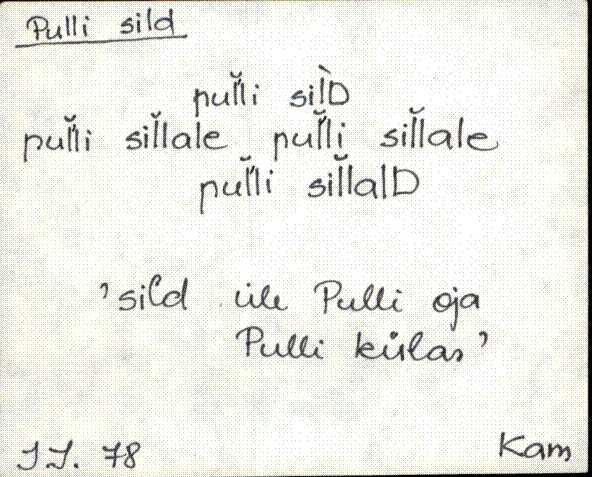 Pulli sild
pul̆l̆i sil̀D
pul̆l̆i sil̆l̆ale pul̆l̆i sil̆l̆ale
pul̆l̆i sil̆l̆alD
’sild üle Pulli oja
Pulli külas’
J.J. 78
Kam